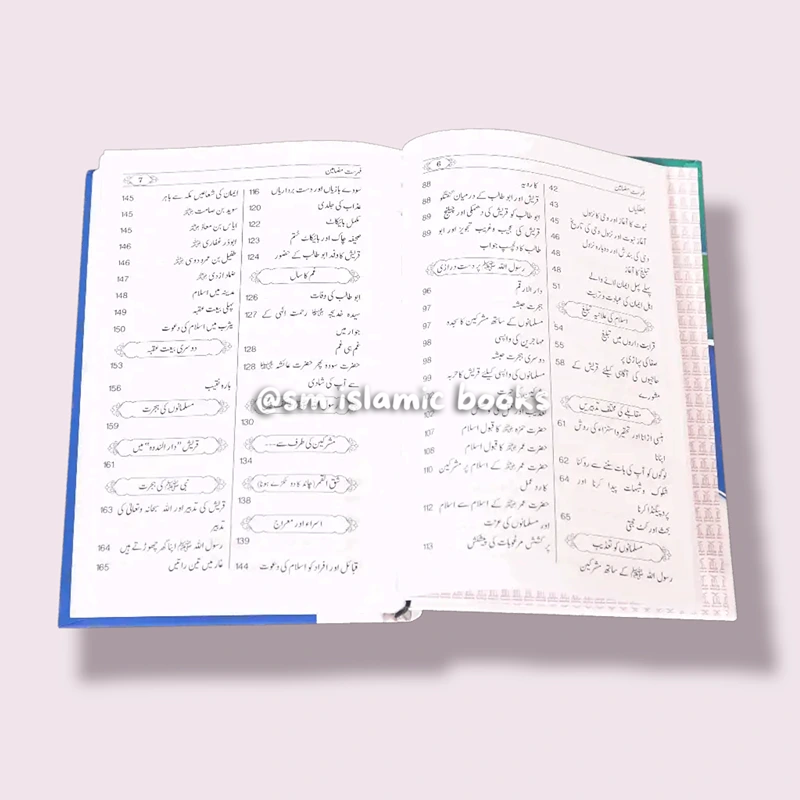 فہرست مضامین
6
جھلکیاں 42
نبوت کا آغاز اور وحی کا نزول 43
آغاز نبوت اور نزول وحی کی تاریخ 45
وحی کی بندش اور دوبارہ نزول 46
تبلیغ کا آغاز 48
پہلے پہل ایمان لانے والے 48
اہل ایمان کی عبادت و تربیت 51
اسلام کی علانیہ تبلیغ
قرابت داروں میں تبلیغ 54
صفا کی پہاڑی پر 55
حاجیوں کی آگاہی کیلئے قریش کے 58
مشورے
مقابلے کی مختلف تدبیریں
ہنسی اڑانا اور تحقیر و استہزاء کی روش 61
اپنانا
لوگوں کو آپ کی بات سننے سے روکنا 62
شکوک و شبہات پیدا کرنا اور 64
پروپیگنڈا کرنا
بحث اور کٹ حجتی 65
مسلمانوں کو تعذیب
رسول اللہ ﷺ کے ساتھ مشرکین
کا رویہ 88
قریش اور ابو طالب کے درمیان گفتگو 88
ابو طالب کو قریش کی دھمکی اور چیلنج 89
قریش کی عجیب و غریب تجویز اور ابو 89
طالب کا دلچسپ جواب
رسول اللہ ﷺ پر دست درازی
دار الارقم 96
ہجرت حبشہ 97
مسلمانوں کے ساتھ مشرکین کا سجدہ 97
مہاجرین کی واپسی 98
دوسری ہجرت حبشہ 98
مسلمانوں کی واپسی کیلئے قریش کا حربہ 99
حضرت حمزہ کا قبول اسلام 107
حضرت عمر کا قبول اسلام 108
حضرت عمر کے اسلام پر مشرکین 110
کا رد عمل
حضرت عمر کے اسلام سے اسلام 112
اور مسلمانوں کی عزت
پر کشش مرغوبات کی پیشکش 113
فہرست مضامین
7
سودے بازیاں اور دست برداریاں 116
عذاب کی جلدی 120
مکمل بائیکاٹ 122
صحیفہ چاک اور بائیکاٹ ختم 123
قریش کا وفد ابو طالب کے حضور 124
غم کا سال
ابو طالب کی وفات 126
سیدہ خدیجہ رحمت الٰہی کے 127
جوار میں
غم ہی غم 128
حضرت سودہ پھر حضرت عائشہ 128
سے آپ کی شادی
رسول اللہ
130
مشرکین کی طرف سے ۔۔۔
134
شق القمر (چاند کا دو ٹکڑے ہونا)
138
اسراء اور معراج
139
قبائل اور افراد کو اسلام کی دعوت 144
ایمان کی شعاعیں مکہ سے باہر 145
سوید بن صامت 145
ایاس بن معاذ 145
ابوذر غفاری 146
طفیل بن عمرو دوسی 146
ضماد ازدی 147
مدینہ میں اسلام 148
پہلی بیعت عقبہ 149
یثرب میں اسلام کی دعوت 150
دوسری بیعت عقبہ
153
بارہ نقیب 156
مسلمانوں کی ہجرت
159
قریش "دار الندوہ" میں
161
نبی ﷺ کی ہجرت
قریش کی تدبیر اور اللہ سبحانہ وتعالیٰ کی 163
تدبیر
رسول اللہ ﷺ اپنا گھر چھوڑتے ہیں 164
غار میں تین راتیں 165
@sm.islamic books